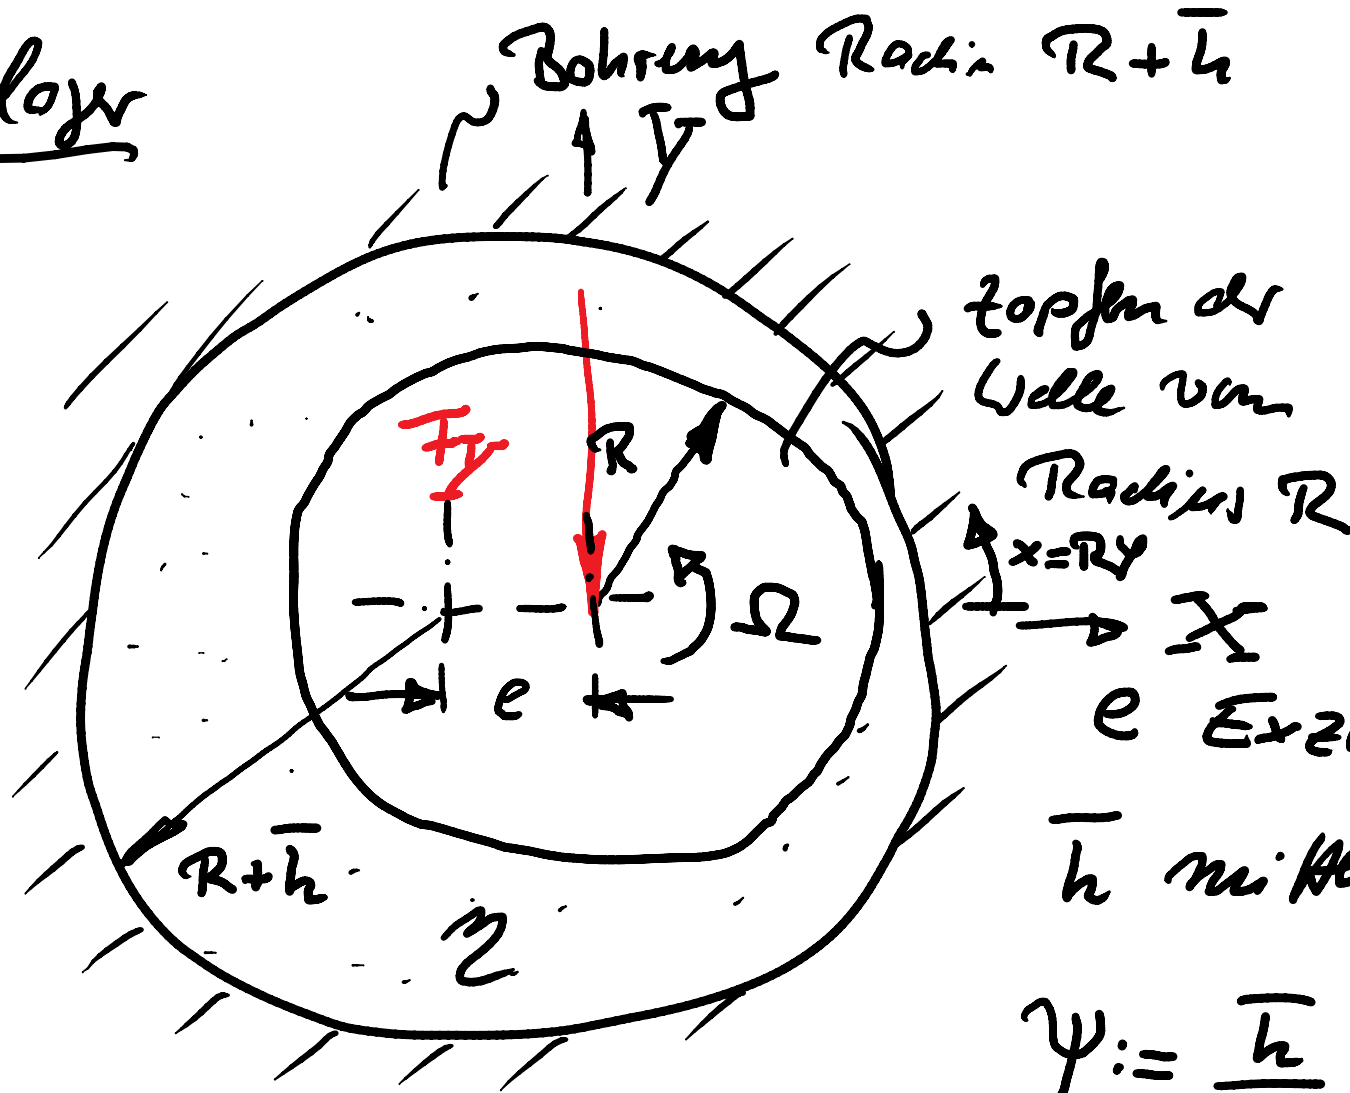 lager
Bohrung Radius R + h̅
Y
Zapfen der
Welle vom
Radius R
F_Y
R
x = Rφ
Ω
X
e
e Exze
R + h̅
h̅ mittl
η
ψ := h̅